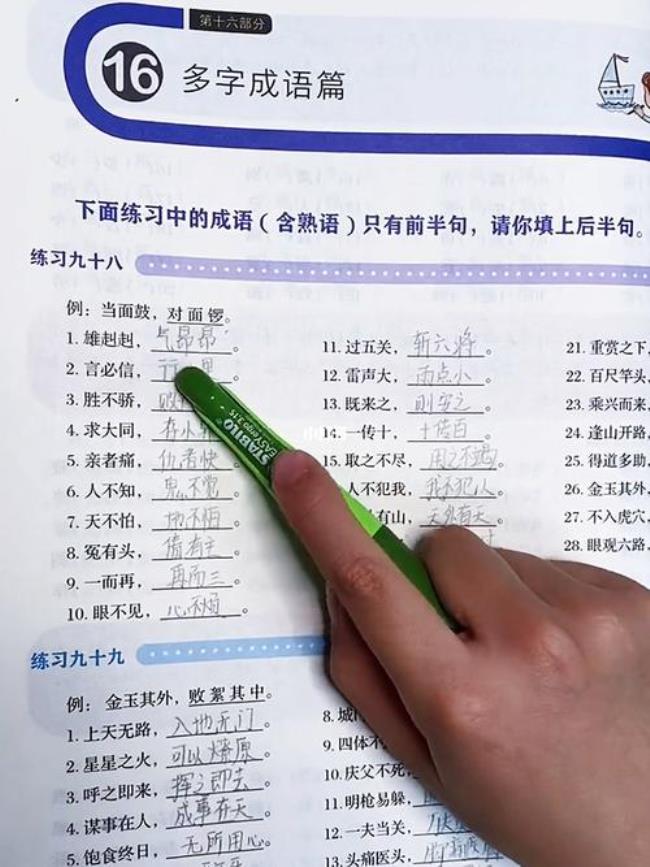 第十六部分
16 多字成语篇
下面练习中的成语（含熟语）只有前半句，请你填上后半句。
练习九十八
例：当面鼓，对面锣。
1. 雄赳赳，气昂昂。
2. 言必信，行
3. 胜不骄，败
4. 求大同，存小异
5. 亲者痛，仇者快。
6. 人不知，鬼不觉。
7. 天不怕，地不怕。
8. 冤有头，债有主。
9. 一而再，再而三。
10. 眼不见，心不烦。
11. 过五关，斩六将。
12. 雷声大，雨点小。
13. 既来之，则安之。
14. 一传十，十传百。
15. 取之不尽，用之不竭。
人不犯我，我不犯人。
有山，天外有天。
21. 重赏之下，
22. 百尺竿头，
23. 乘兴而来，
24. 逢山开路，
25. 得道多助，
26. 金玉其外，
27. 不入虎穴，
28. 眼观六路，
练习九十九
例：金玉其外，败絮其中。
1. 上天无路，入地无门。
2. 星星之火，可以燎原。
3. 呼之即来，挥之即去。
4. 谋事在人，成事在天。
5. 饱食终日，无所用心。
8. 城门
9. 四体不
10. 庆父不死，
11. 明枪易躲，
12. 一夫当关，
13. 头痛医头，
STABILO
EASYergo 3.15